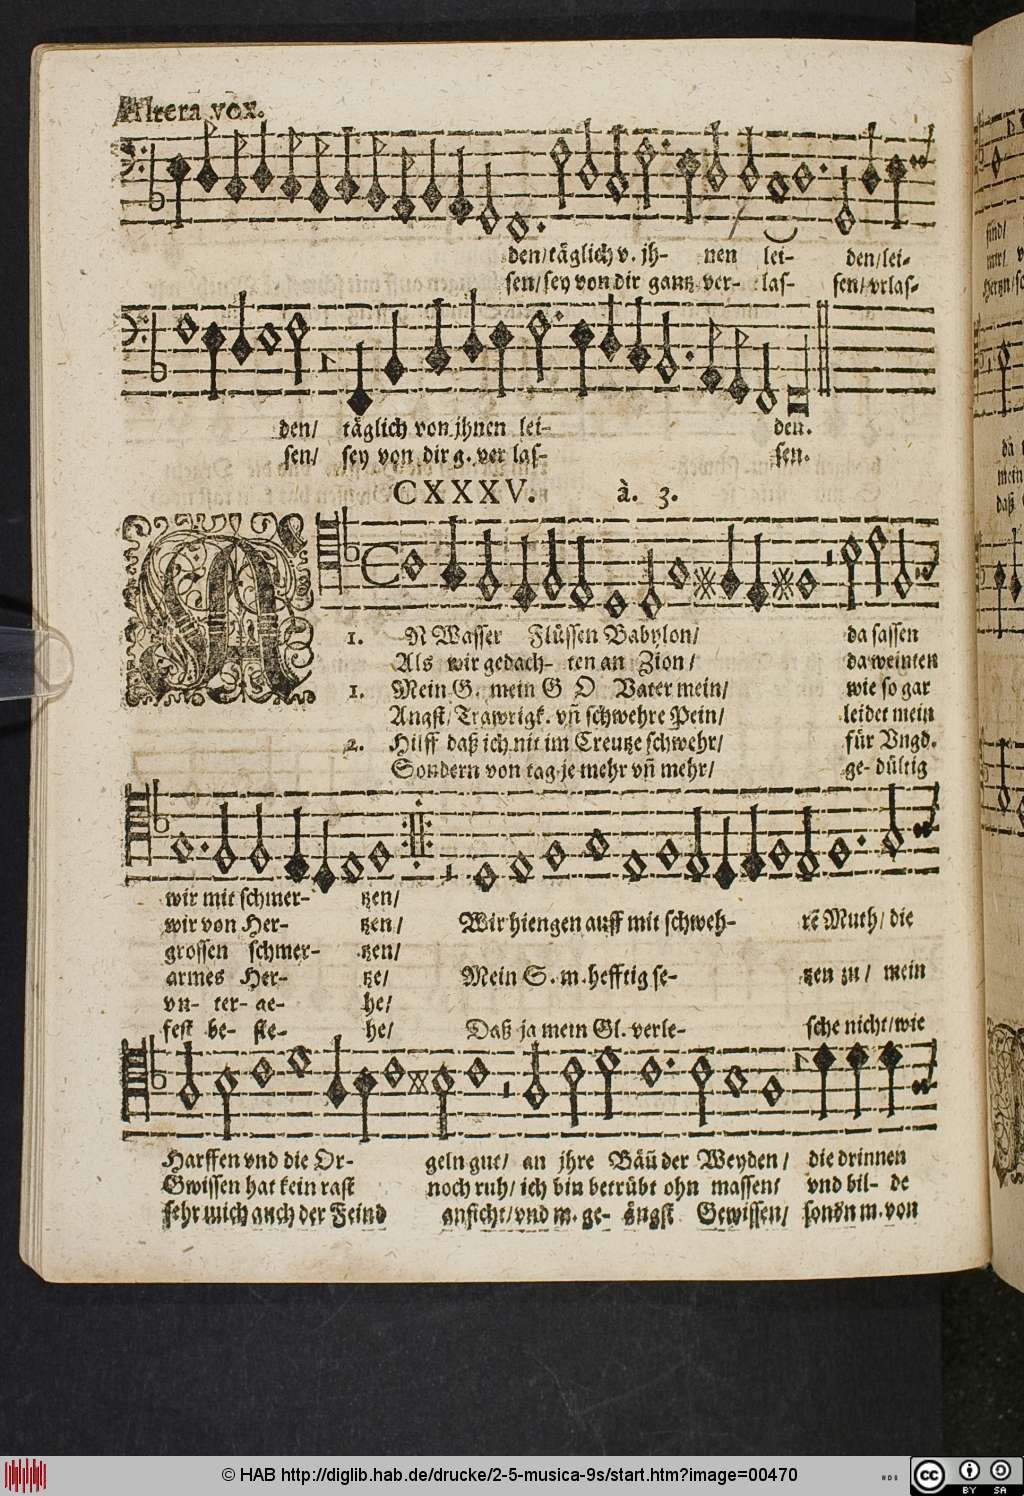 Altera vox.
den/täglich v. jh- nen lei- den/lei-
sen/sey von dir gantz ver- las- sen/vrlas-
den/ täglich von jhnen lei- den.
sen/ sey von dir g. ver las- sen.
CXXXV. à. 3.
A
1. N Wasser Flüssen Babylon/ da sassen
Als wir gedach- ten an Zion/ da weinten
1. Mein G. mein G O Vater mein/ wie so gar
Angst/Trawrigk. vñ schwehre Pein/ leidet mein
2. Hilff daß ich nit im Creutze schwehr/ für Vngd.
Sondern von tag je mehr vñ mehr/ ge- dültig
wir mit schmer- tzen/
wir von Her- tzen/ Wir hiengen auff mit schweh- rẽ Muth/ die
grossen schmer- tzen/
armes Her- tze/ Mein S. m. hefftig se- tzen zu/ mein
vn- ter- ge- he/
fest be- ste- he/ Daß ja mein Gl. verle- sche nicht/wie
Harffen vnd die Or- geln gut/ an jhre Bäũ der Weyden/ die drinnen
Gwissen hat kein rast noch ruh/ ich bin betrübt ohn massen/ vnd bil- de
sehr mich auch der Feind anficht/vnd m. ge- ängst Gewissen/ sondn m. von
© HAB http://diglib.hab.de/drucke/2-5-musica-9s/start.htm?image=00470
cc BY SA